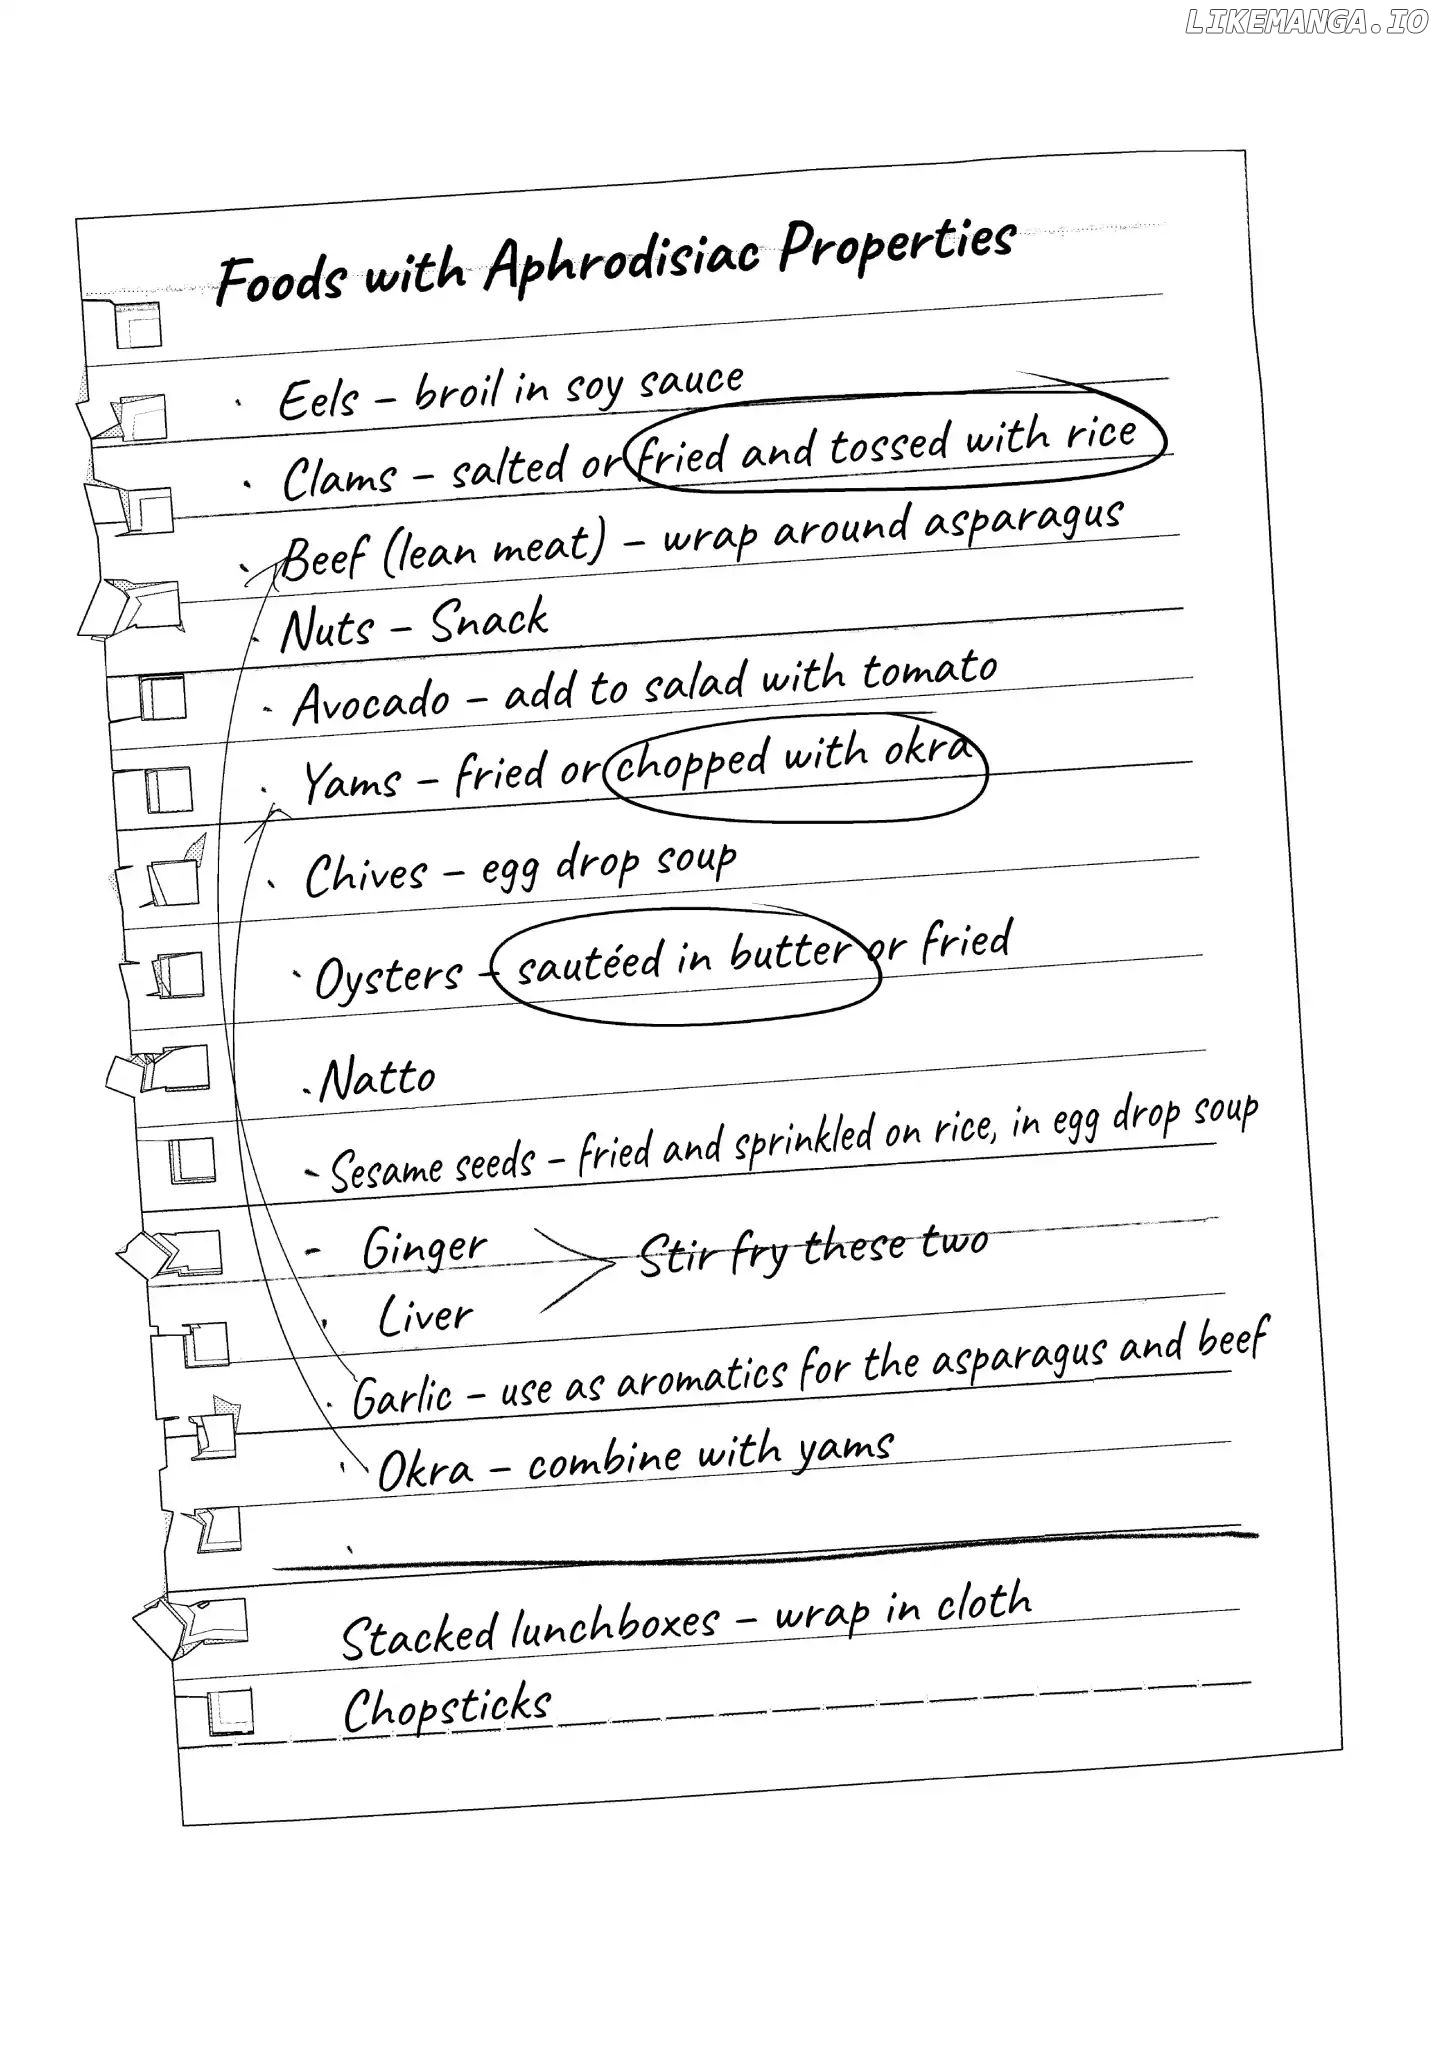 LIKEMANGA.IO
Foods with Aphrodisiac Properties
· Eels – broil in soy sauce
· Clams – salted or fried and tossed with rice
· Beef (lean meat) – wrap around asparagus
· Nuts – Snack
· Avocado – add to salad with tomato
· Yams – fried or chopped with okra
· Chives – egg drop soup
· Oysters – sautéed in butter or fried
· Natto
- Sesame seeds – fried and sprinkled on rice, in egg drop soup
- Ginger > Stir fry these two
· Liver
· Garlic – use as aromatics for the asparagus and beef
· Okra – combine with yams
·
Stacked lunchboxes – wrap in cloth
Chopsticks